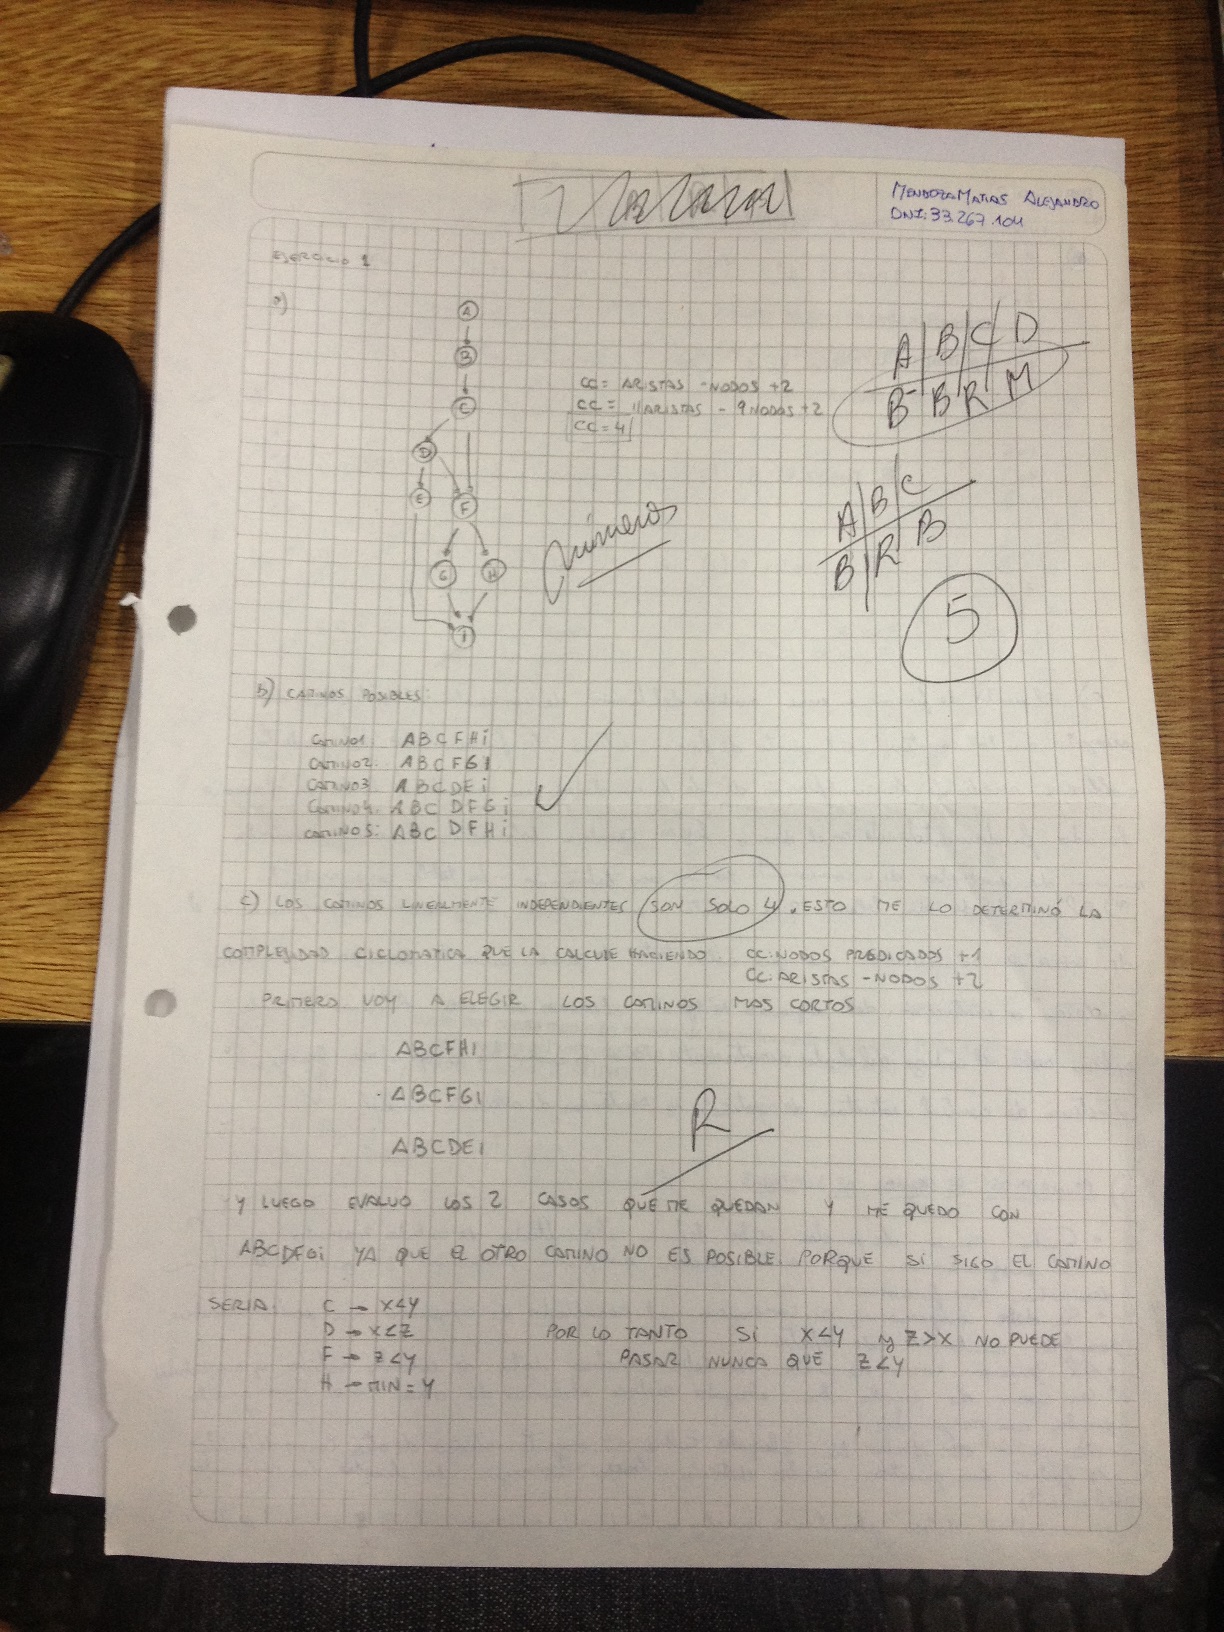 MENDOZA MATIAS ALEJANDRO
DNI: 33.267.104
EJERCICIO 1
a)
A
B
C
D
E
F
G
H
I
CC = ARISTAS - NODOS + 2
CC = 11 ARISTAS - 9 NODOS + 2
CC = 4
A B C D
B- B R M
números
A B C
B R B
5
b) CAMINOS POSIBLES:
CAMINO1: ABCFHi
CAMINO2: ABCFGI
CAMINO3: ABCDEi
CAMINO4: ABCDFGi
CAMINO5: ABCDFHi
c) LOS CAMINOS LINEALMENTE INDEPENDIENTES SON SOLO 4. ESTO ME LO DETERMINÓ LA
COMPLEJIDAD CICLOMATICA QUE LA CALCULE HACIENDO CC: NODOS PREDICADOS +1
CC: ARISTAS - NODOS +2
PRIMERO VOY A ELEGIR LOS CAMINOS MAS CORTOS
ABCFHI
- ABCFGI
ABCDEI
R
Y LUEGO EVALUO LOS 2 CASOS QUE ME QUEDAN Y ME QUEDO CON
ABCDFGi YA QUE EL OTRO CAMINO NO ES POSIBLE. PORQUE SI SIGO EL CAMINO
SERIA: C → X<Y
D → X<Z POR LO TANTO SI X<Y y Z>X NO PUEDE
F → Z<Y PASAR NUNCA QUE Z<Y
H → MIN = Y